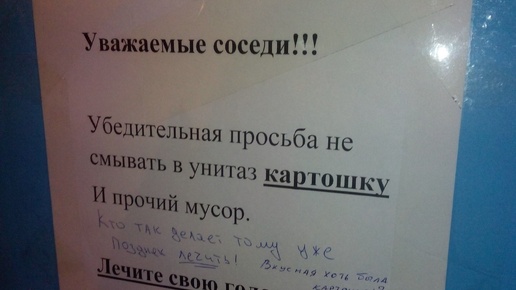 Уважаемые соседи!!!
Убедительная просьба не
смывать в унитаз картошку
И прочий мусор.
Кто так делает тому уже
Поздняк лечить! Вкусная хоть была
Лечите свою